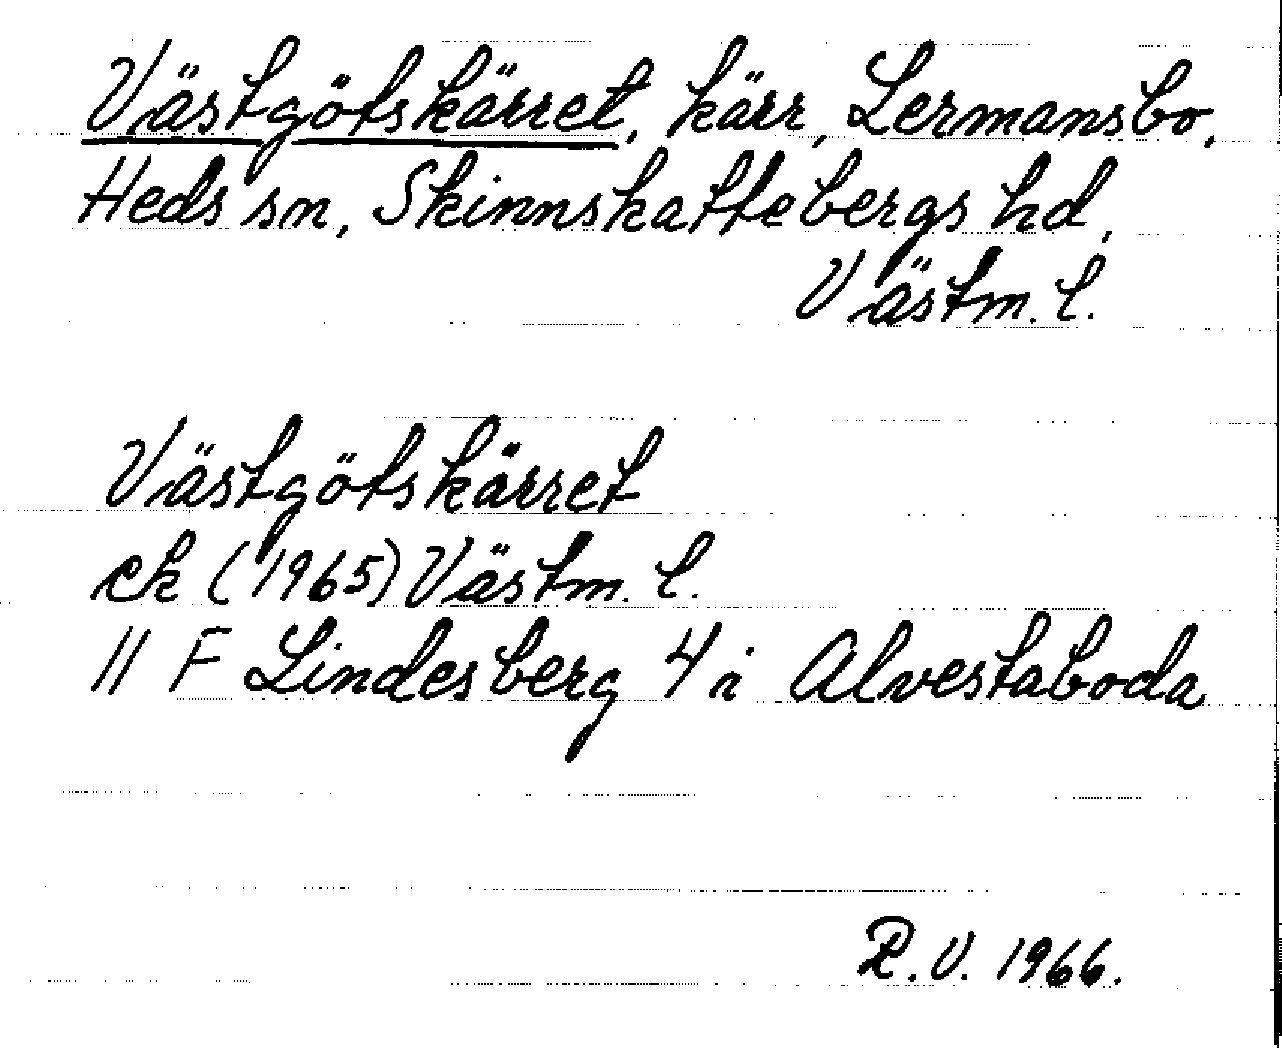 Västgötskärret, kärr, Lermansbo,
Heds sn, Skinnskattebergs hd,
Västm. l.
Västgötskärret
ek (1965) Västm. l.
11 F Lindesberg 4 i Alvestaboda
R.V. 1966.